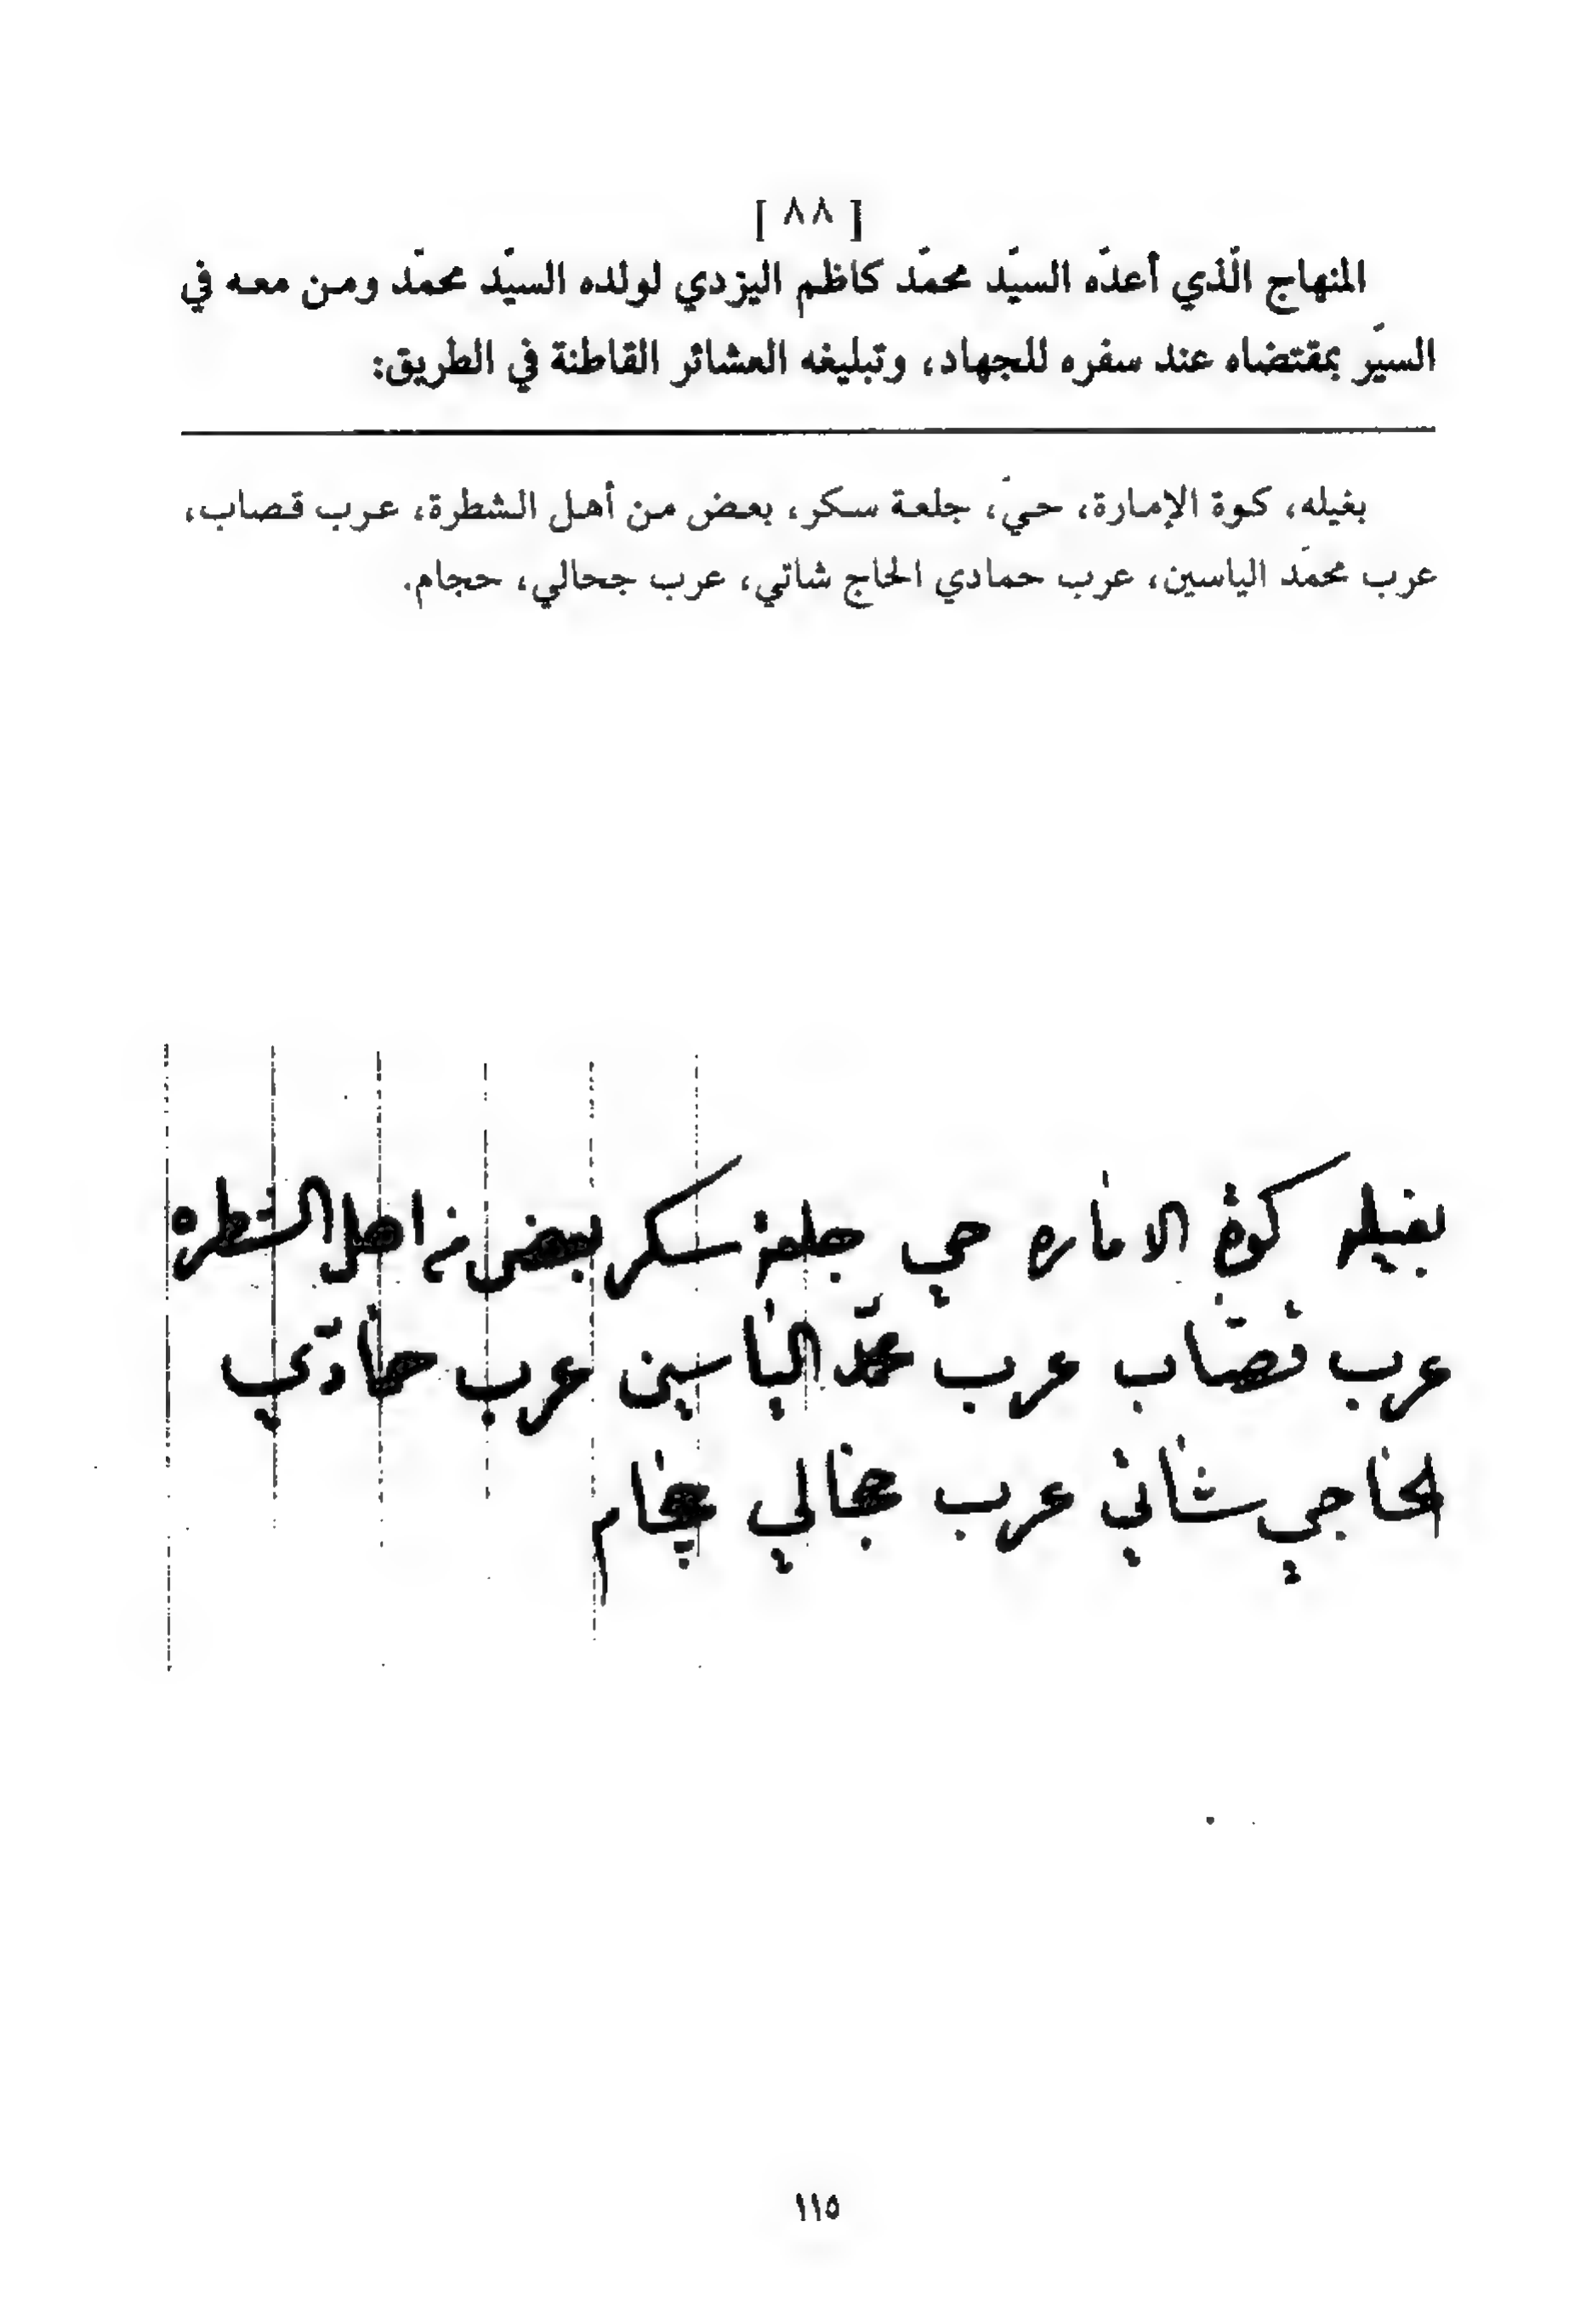 [ ٨٨ ]
المنهاج الّذي أعدّه السيّد محمّد كاظم اليزدي لولده السيّد محمّد ومن معه في
السيَر بمقتضاه عند سفره للجهاد، وتبليغه العشائر القاطنة في الطريق:
بغيله، كوة الإمارة، حيّ، جلعة سكر، بعض من أهل الشطرة، عرب قصاب،
عرب محمّد الياسين، عرب حمادي الحاج شاتي، عرب جحالي، حجام.
بغيله كوة الاماره حي جلعة سكر بعض من اهل الشطره
عرب قصّاب عرب محمّد الياسين عرب حمادي
الحاجي شاتي عرب جحالي حچام
١١٥